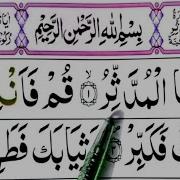 بِسْمِ اللهِ الرَّحْمٰنِ الرَّحِيْمِ
الْمُدَّثِّرُ ۝۱ قُمْ فَاَنْ
فَكَبِّرْ ۝ وَثِيَابَكَ فَطَ